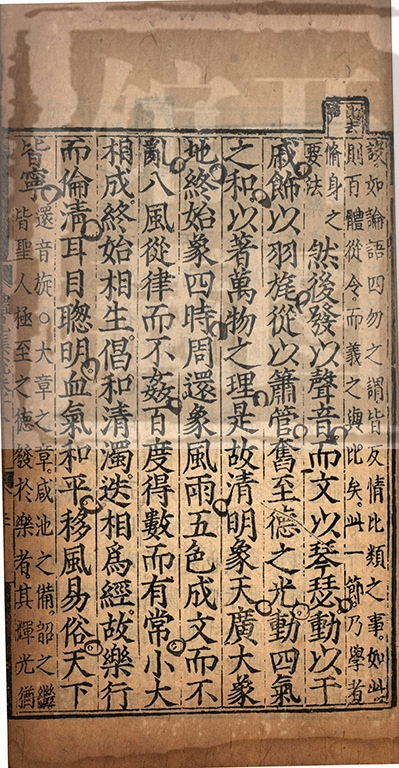 設如論語四勿之謂皆反情比類之事如此
則百體從令而義之與比矣此一節乃學者
脩身之
要法
然後發以聲音而文以琴瑟動以干
戚飾以羽旄從以簫管奮至德之光動四氣
之和以著萬物之理是故清明象天廣大象
地終始象四時周還象風雨五色成文而不
亂八風從律而不姦百度得數而有常小大
相成終始相生倡和清濁迭相爲經故樂行
而倫清耳目聰明血氣和平移風易俗天下
皆寧
還音旋○大章之章咸池之備韶之繼
皆聖人極至之德發於樂者其輝光猶